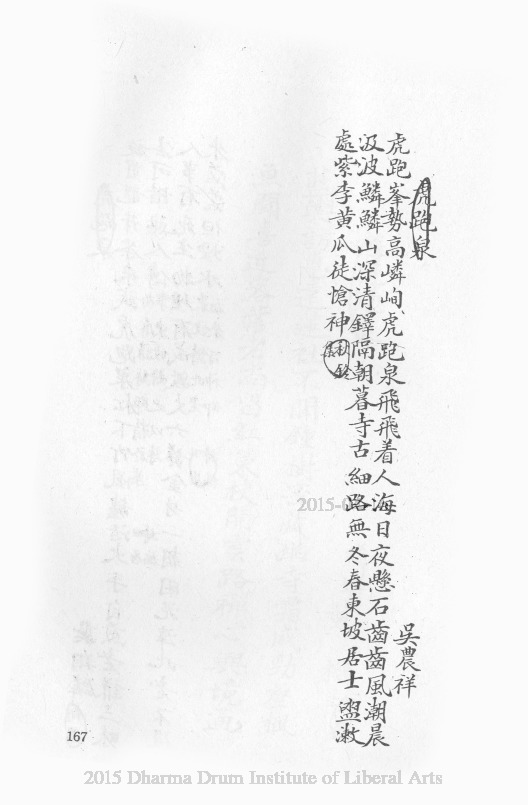 虎跑泉
吳農祥
虎跑峯勢高嶙峋虎跑泉飛飛着人海日夜懸石齒齒風潮晨
汲波鱗鱗山深清鐸隔朝暮寺古細路無冬春東坡居士盥漱
處紫李黄瓜徒愴神
2015-0
167
2015 Dharma Drum Institute of Liberal Arts